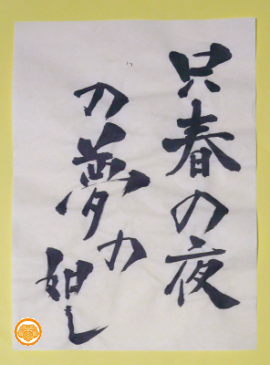 只春の夜
の夢の
如し